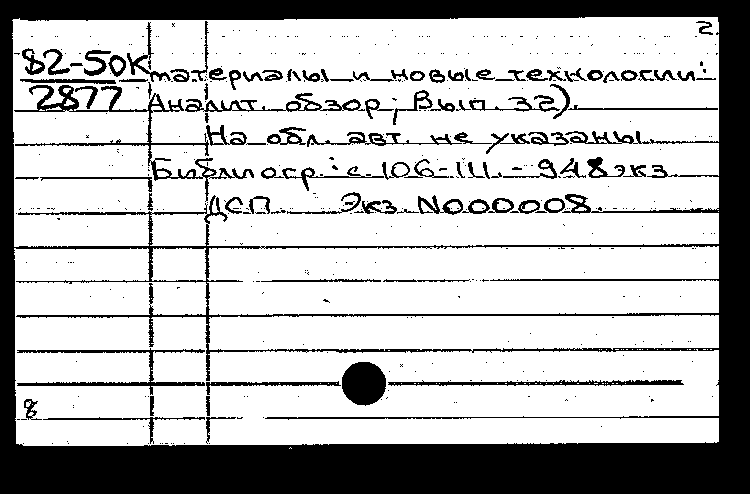 2.
82-50К материалы и новые технологии:
2877 Аналит. обзор; Вып. 32).
На обл. авт. не указаны.
Библиогр.: с. 106-111. - 948 экз.
ДСП. Экз. N000008.
8